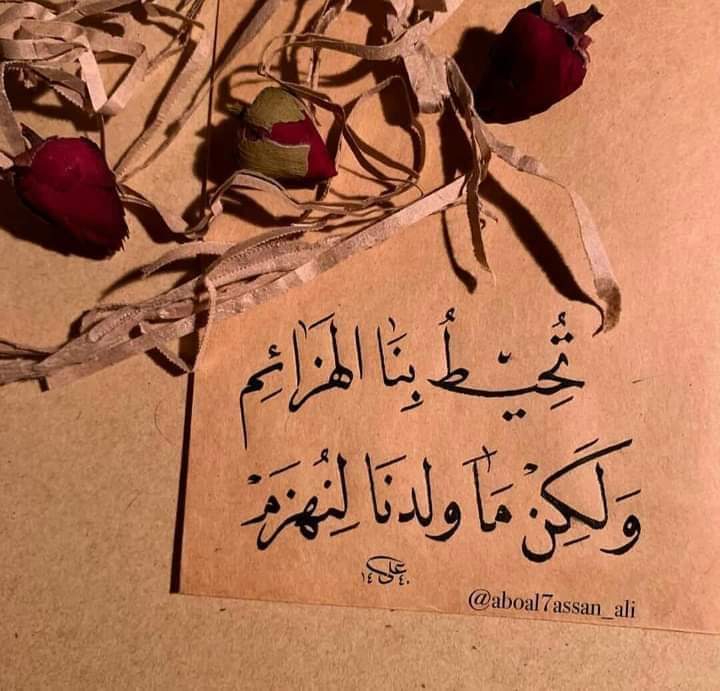 تُحِيّطُ بِنَا الهَزَائِمِ
وَلَكِنْ مَا ولدنَا لِنُهزَمْ
علي
١٤٤٠
@aboal7assan_ali